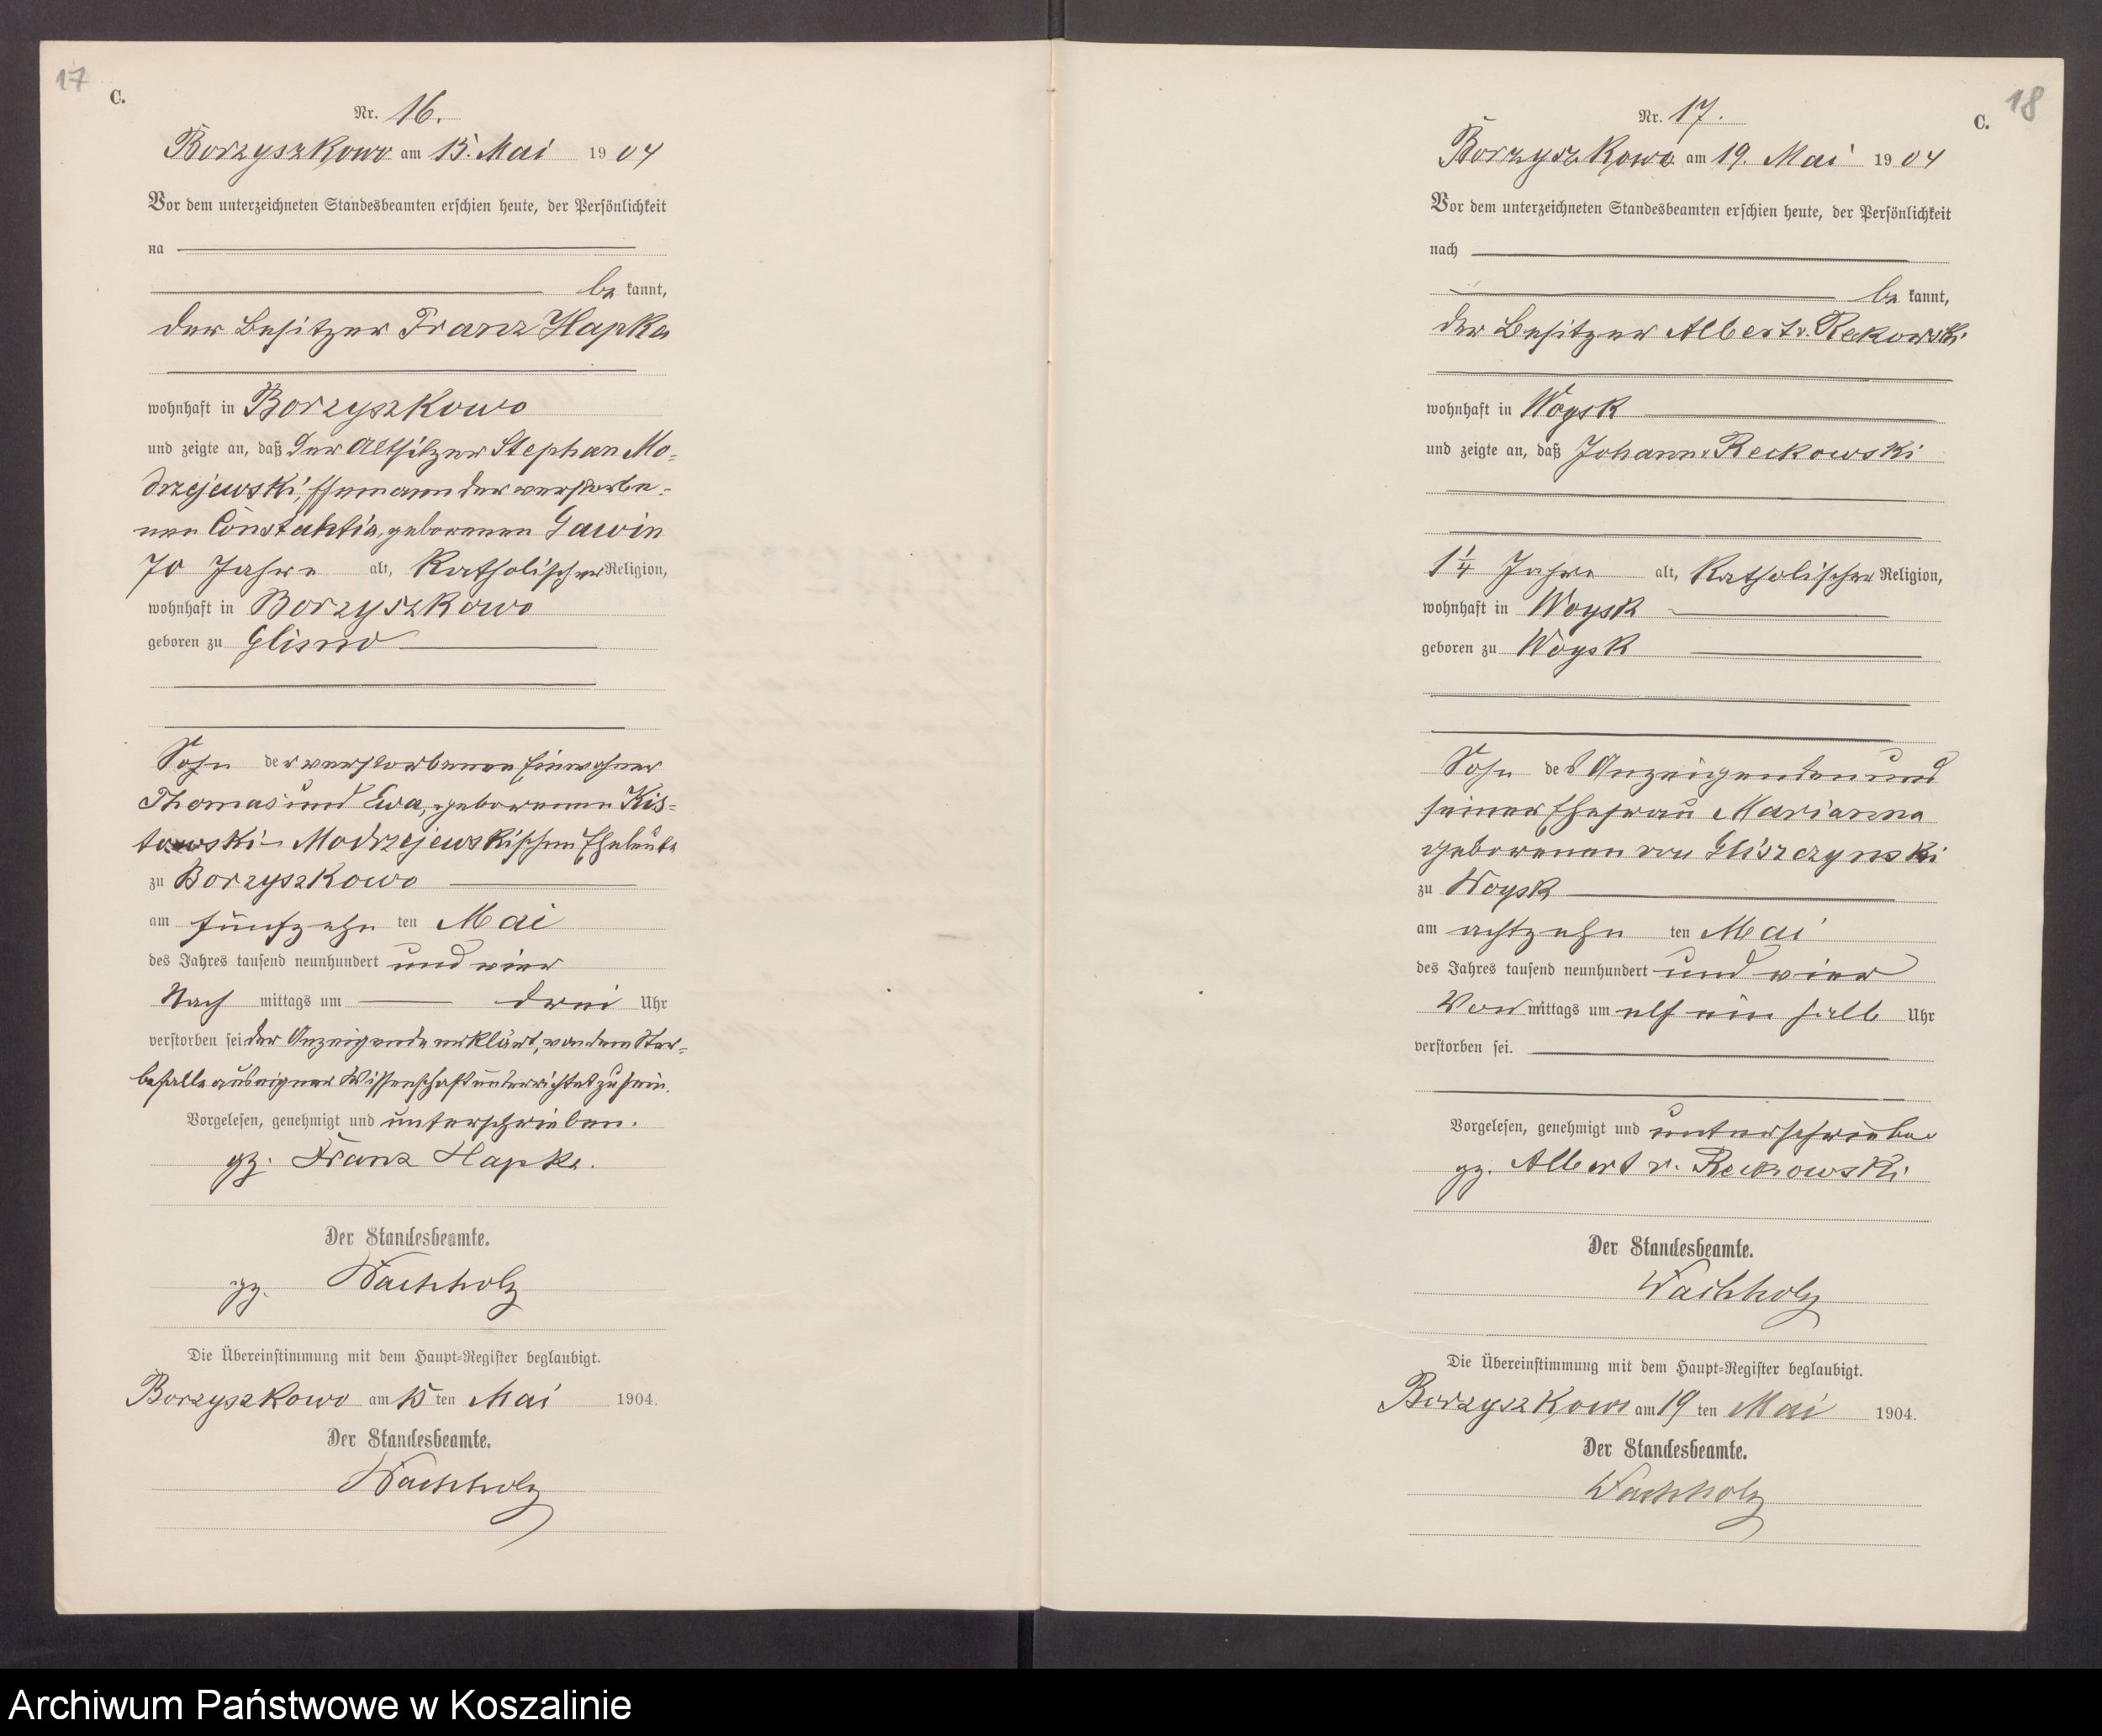 17
C.
Nr. 16.
Borzyszkowo am 15. Mai 1904
Vor dem unterzeichneten Standesbeamten erschien heute, der Persönlichkeit
na
be kannt,
der Besitzer Franz Hapka
wohnhaft in Borzyszkowo
und zeigte an, daß der Altsitzer Stephan Mo-
drzejewski, Ehemann der verstorbe-
nen Constantia, geborenen Gawin
70 Jahre alt, katholischer Religion,
wohnhaft in Borzyszkowo
geboren zu Glisno
Sohn der verstorbenen Einwohner
Thomas und Ewa, geborenen Kis-
towski - Modrzejewskischen Eheleute
zu Borzyszkowo
am fünfzehn ten Mai
des Jahres tausend neunhundert und vier
Nach mittags um drei Uhr
verstorben sei der Anzeigende erklärt, von dem Ster-
befalle aus eigner Wissenschaft unterrichtet zu sein.
Vorgelesen, genehmigt und unterschrieben.
gz. Franz Hapka.
Der Standesbeamte.
gz. Wachholz
Die Übereinstimmung mit dem Haupt-Register beglaubigt.
Borzyszkowo am 15 ten Mai 1904.
Der Standesbeamte.
Wachholz
18
C.
Nr. 17.
Borzyszkowo am 19. Mai 1904
Vor dem unterzeichneten Standesbeamten erschien heute, der Persönlichkeit
nach
be kannt,
der Besitzer Albert v. Reckowski
wohnhaft in Woysk
und zeigte an, daß Johann v. Reckowski
1 1/4 Jahre alt, katholischer Religion,
wohnhaft in Woysk
geboren zu Woysk
Sohn des Anzeigenden und
seiner Ehefrau Marianna
geborenen von Gliszczynski
zu Woysk
am achtzehn ten Mai
des Jahres tausend neunhundert und vier
Vor mittags um elf ein halb Uhr
verstorben sei.
Vorgelesen, genehmigt und unterschrieben
gz. Albert v. Reckowski
Der Standesbeamte.
Wachholz
Die Übereinstimmung mit dem Haupt-Register beglaubigt.
Borzyszkowo am 19 ten Mai 1904.
Der Standesbeamte.
Wachholz
Archiwum Państwowe w Koszalinie